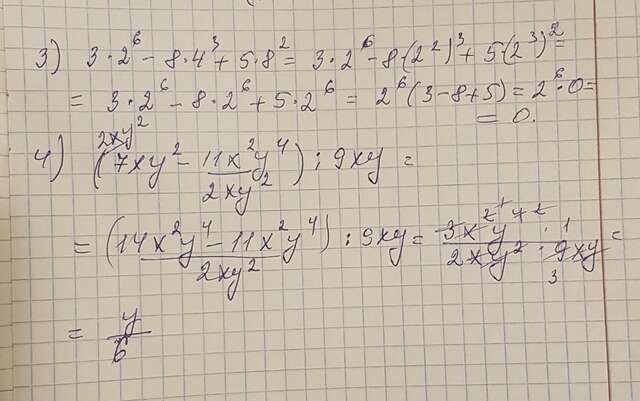 3) 3·2⁶ - 8·4³ + 5·8² = 3·2⁶ - 8·(2²)³ + 5·(2³)² =
= 3·2⁶ - 8·2⁶ + 5·2⁶ = 2⁶(3-8+5) = 2⁶·0 =
= 0.
2xy²
4) (7xy² - 11x²y⁴ / 2xy²) : 9xy =
= (14x²y⁴ - 11x²y⁴ / 2xy²) : 9xy = 3x²y⁴ / 2xy² : 9xy =
= y / 6